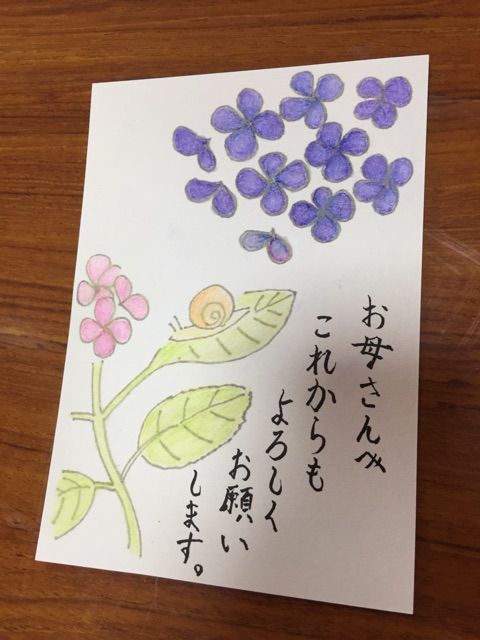 お母さんへ
これからも
よろしく
お願い
します。